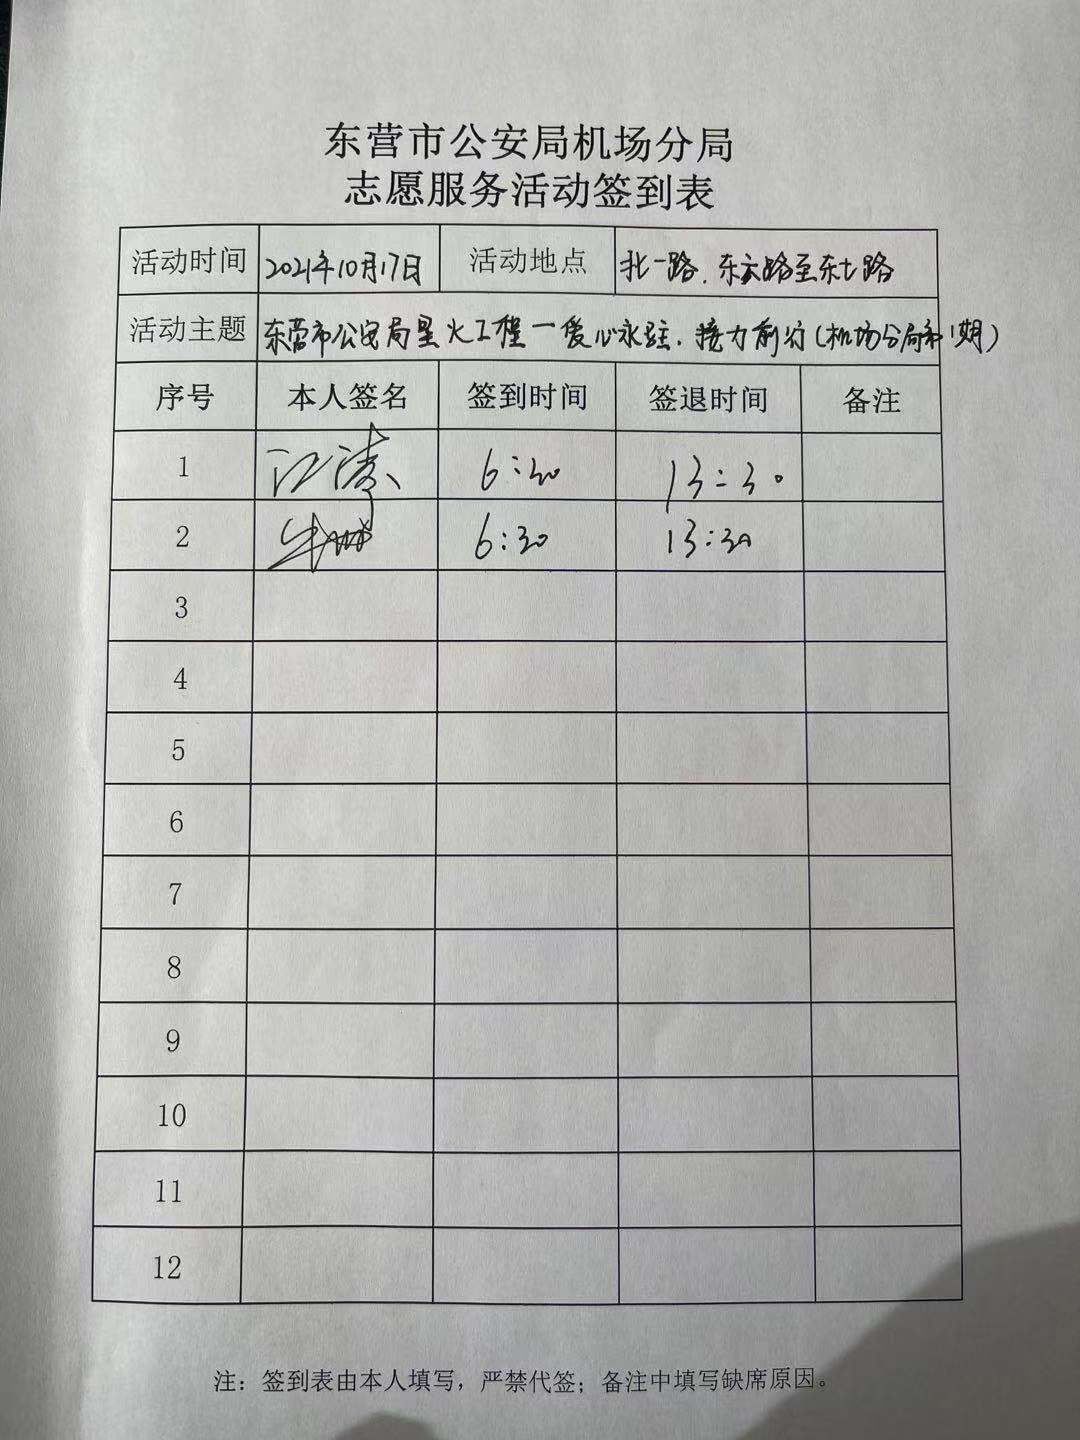 东营市公安局机场分局
志愿服务活动签到表
活动时间 2021年10月17日 活动地点 北一路、东六路至东七路
活动主题 东营市公安局星火工程—爱心永驻、接力前行(机场分局第1期)
序号 本人签名 签到时间 签退时间 备注
1 江涛 6:30 13:30
2 6:30 13:30
3
4
5
6
7
8
9
10
11
12
注：签到表由本人填写，严禁代签；备注中填写缺席原因。